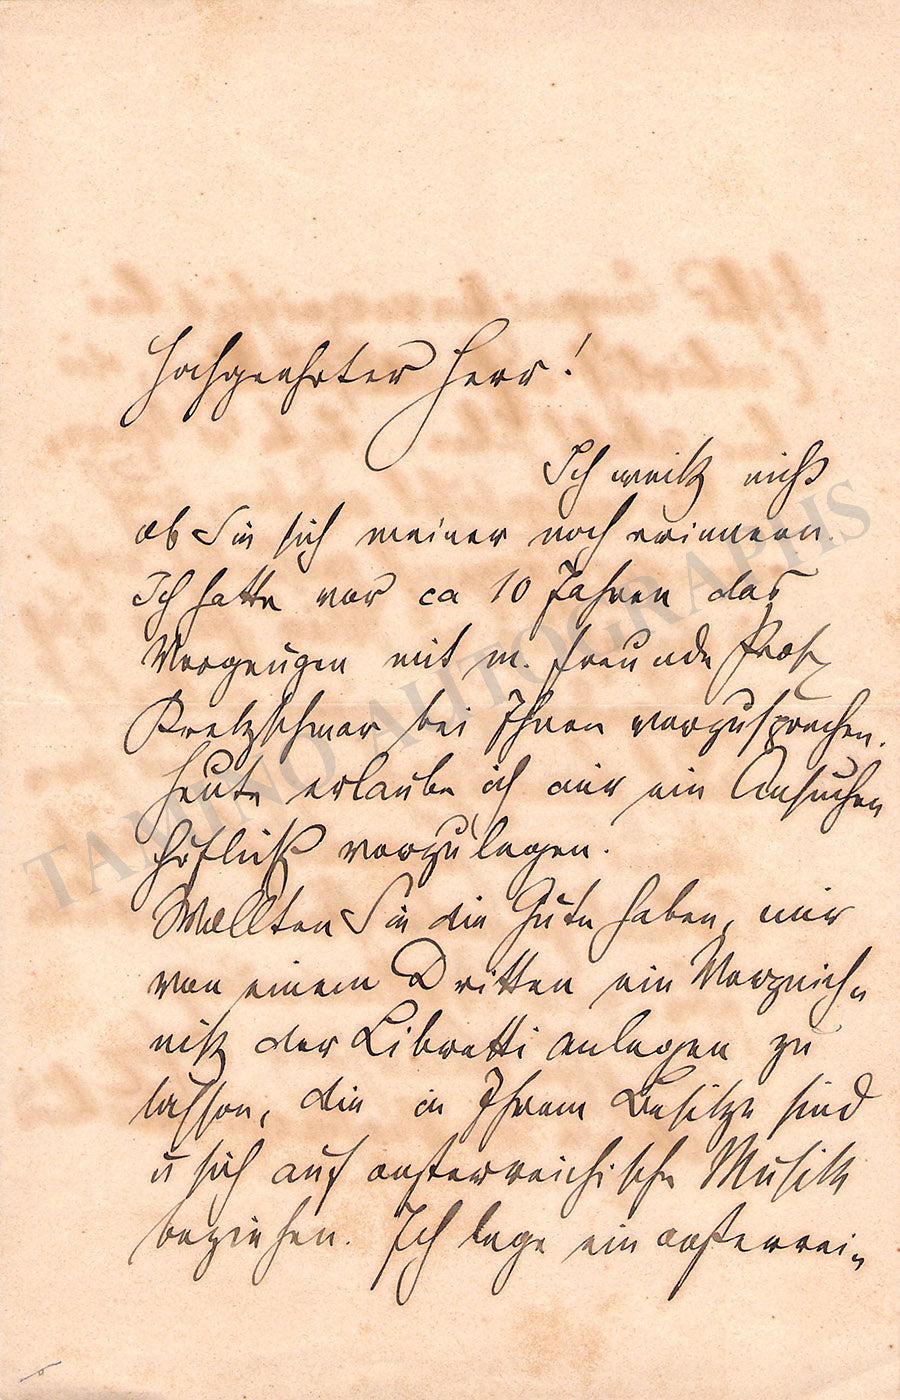 Hochgeehrter Herr!
Ich weiß nicht
ob Sie sich meiner noch erinnern.
Ich hatte vor ca 10 Jahren das
Vergnügen mit m. Freunde Prof
Kretzschmar bei Ihnen vorzusprechen.
Heute erlaube ich mir ein Ansuchen
höflichst vorzulegen.
Wollten Sie die Güte haben, mir
von einem Dritten ein Verzeich-
niß der Libretti anlegen zu
lassen, die in Ihrem Besitze sind
u sich auf oesterreichische Musik
beziehen. Ich lege ein oesterrei-
TAMINO AUTOGRAPHS